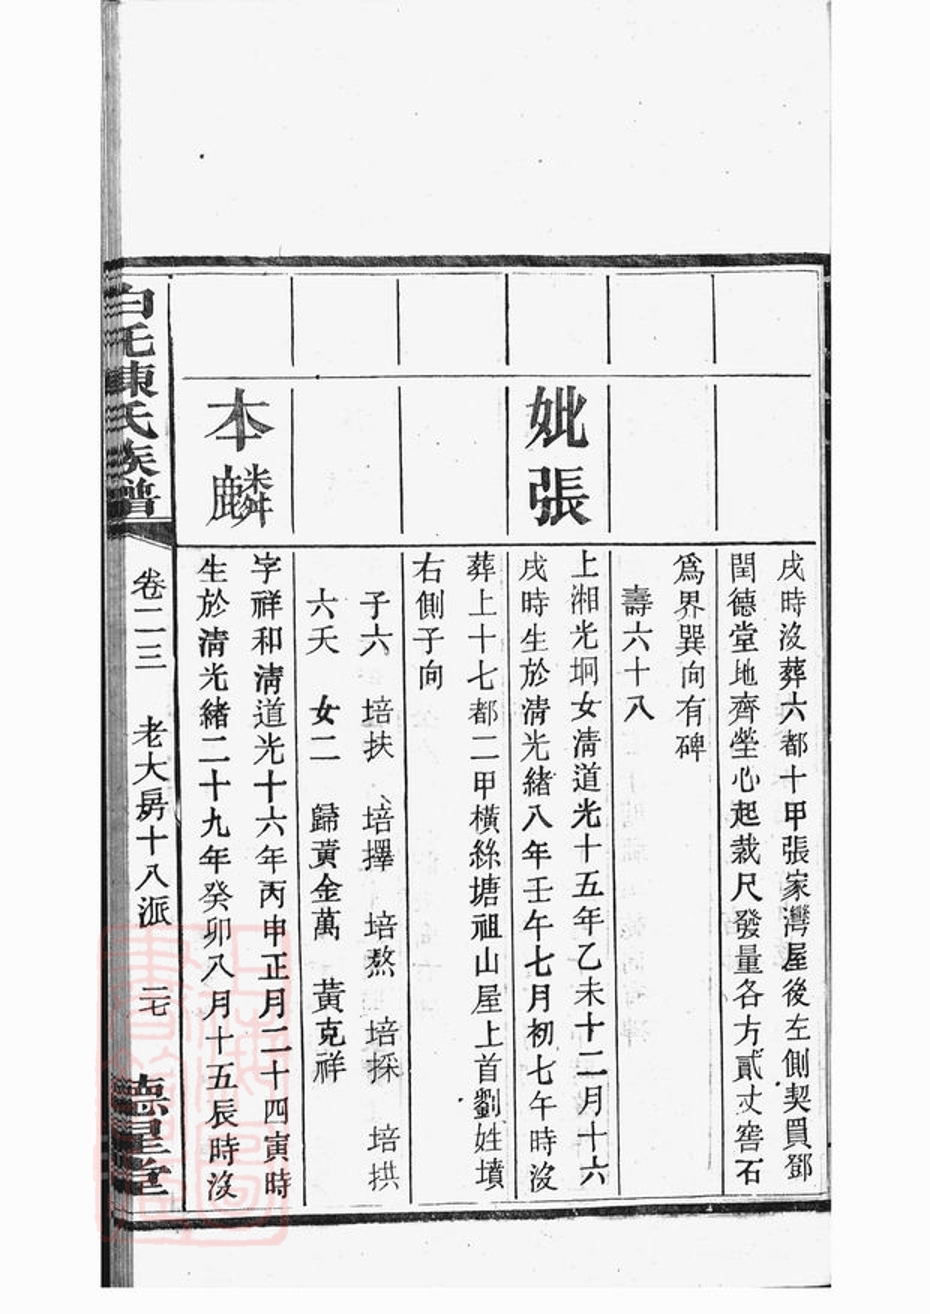 戌時沒葬六都十甲張家灣屋後左側契買鄧
閏德堂地齊塋心起裁尺發量各方貳丈窖石
為界巽向有碑
壽六十八
妣張
上湘光坰女清道光十五年乙未十二月十六
戌時生於清光緒八年壬午七月初七午時沒
葬上十七都二甲橫絲塘祖山屋上首劉姓墳
右側子向
子六 培扶 培擇 培熬 培採 培拱
六夭 女二 歸黃金萬 黃克祥
本麟
字祥和清道光十六年丙申正月二十四寅時
生於清光緒二十九年癸卯八月十五辰時沒
白毛陳氏族譜 卷二三 老大房十八派 二七 德星堂